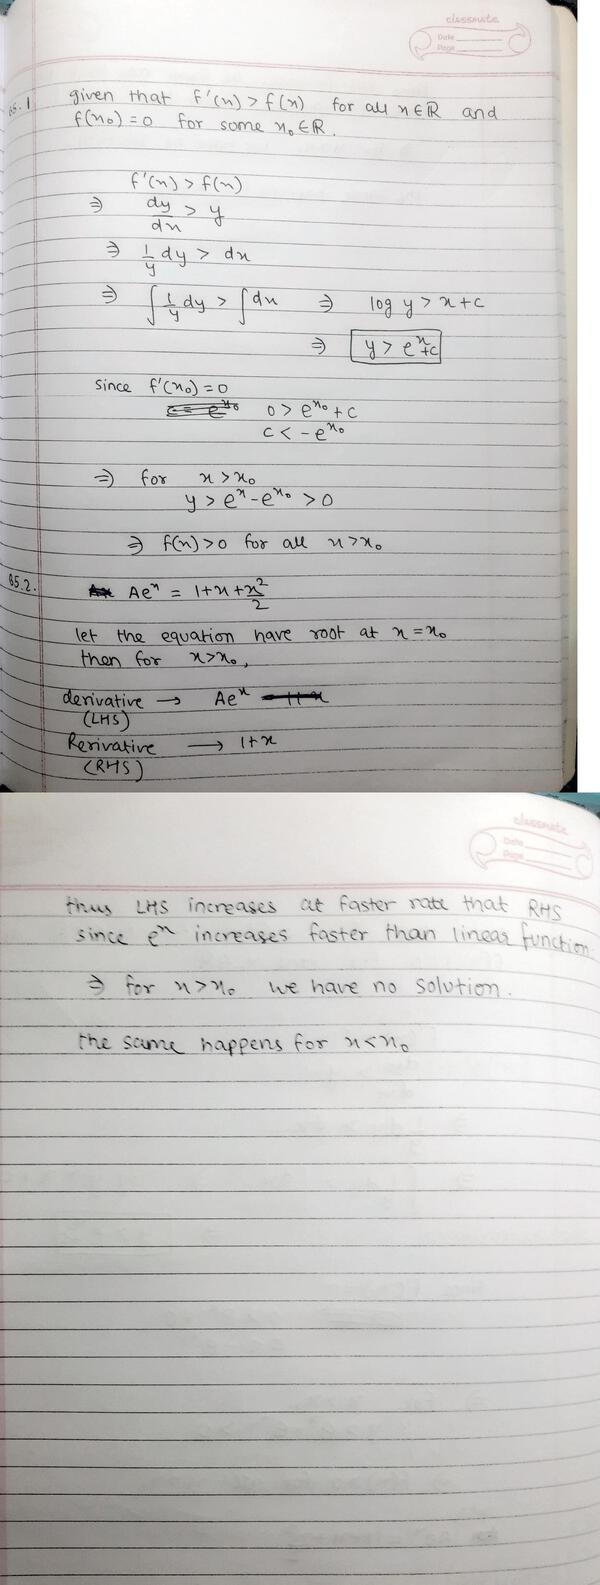 classmate
Date
Page
B5.1 given that f'(x) > f(x) for all x∈ℝ and
f(x₀) = 0 for some x₀∈ℝ.
f'(x) > f(x)
⇒ dy/dx > y
⇒ 1/y dy > dx
⇒ ∫ 1/y dy > ∫ dx ⇒ log y > x + c
⇒ y > eˣ + c
since f'(x₀) = 0
0 > eˣ⁰ + c
c < -eˣ⁰
⇒ for x > x₀
y > eˣ - eˣ⁰ > 0
⇒ f(x) > 0 for all x > x₀
B5.2. Aeˣ = 1 + x + x²/2
let the equation have root at x = x₀
then for x > x₀,
derivative → Aeˣ
(LHS)
Rerivative → 1 + x
(RHS)
classmate
Date
Page
thus LHS increases at faster rate that RHS
since eˣ increases faster than linear function
⇒ for x > x₀ we have no solution.
the same happens for x < x₀